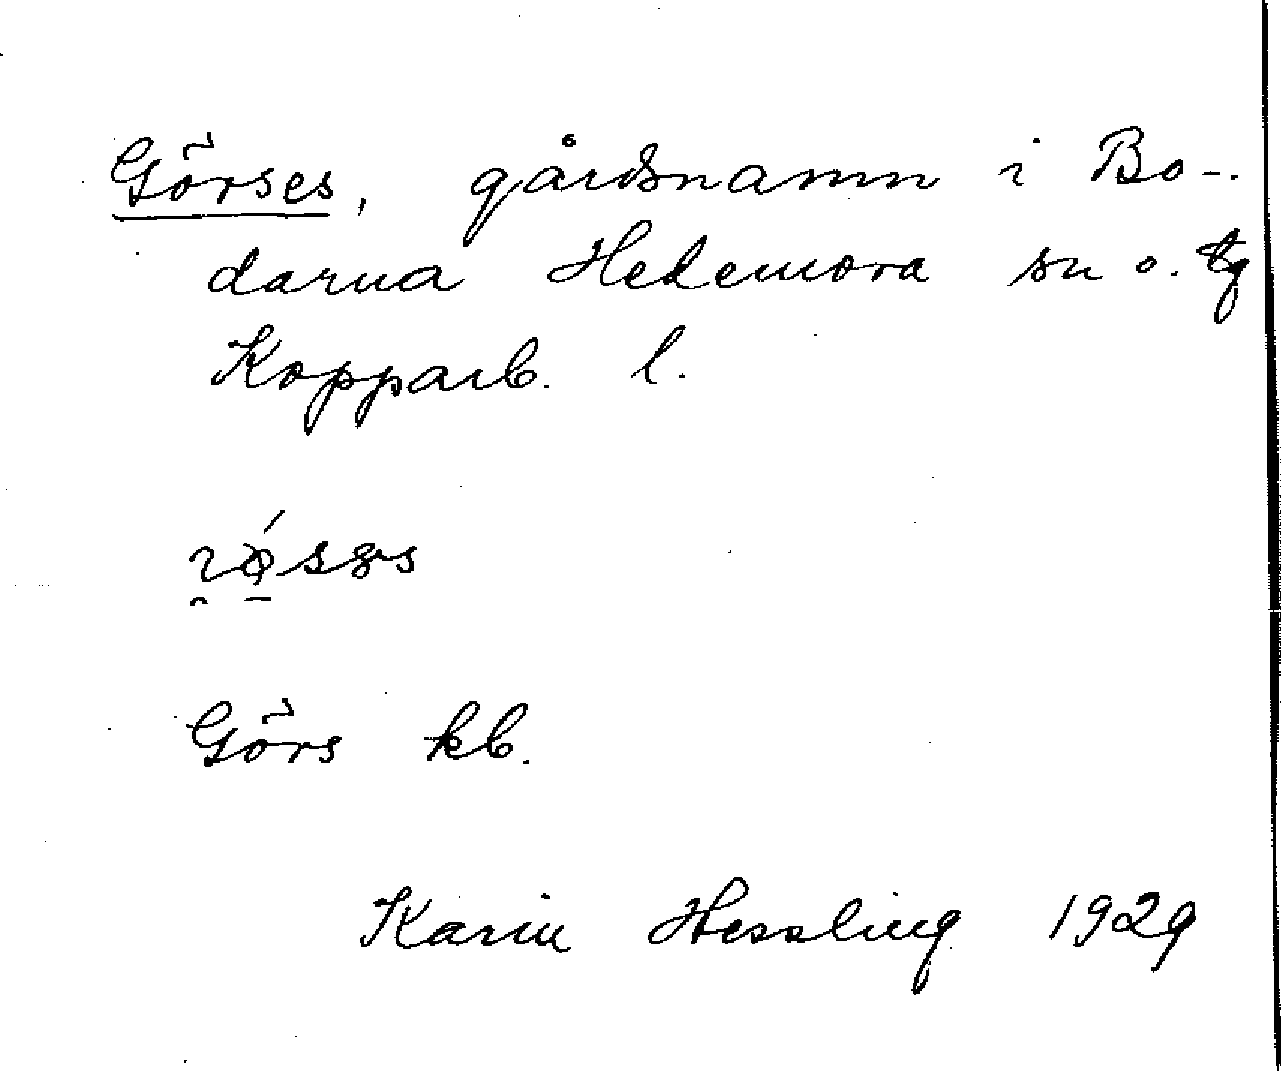 Görses, gårdsnamn i Bo-
darna Hedemora sn o. tg
Kopparb. l.
Görs kb.
Karin Hessling 1929